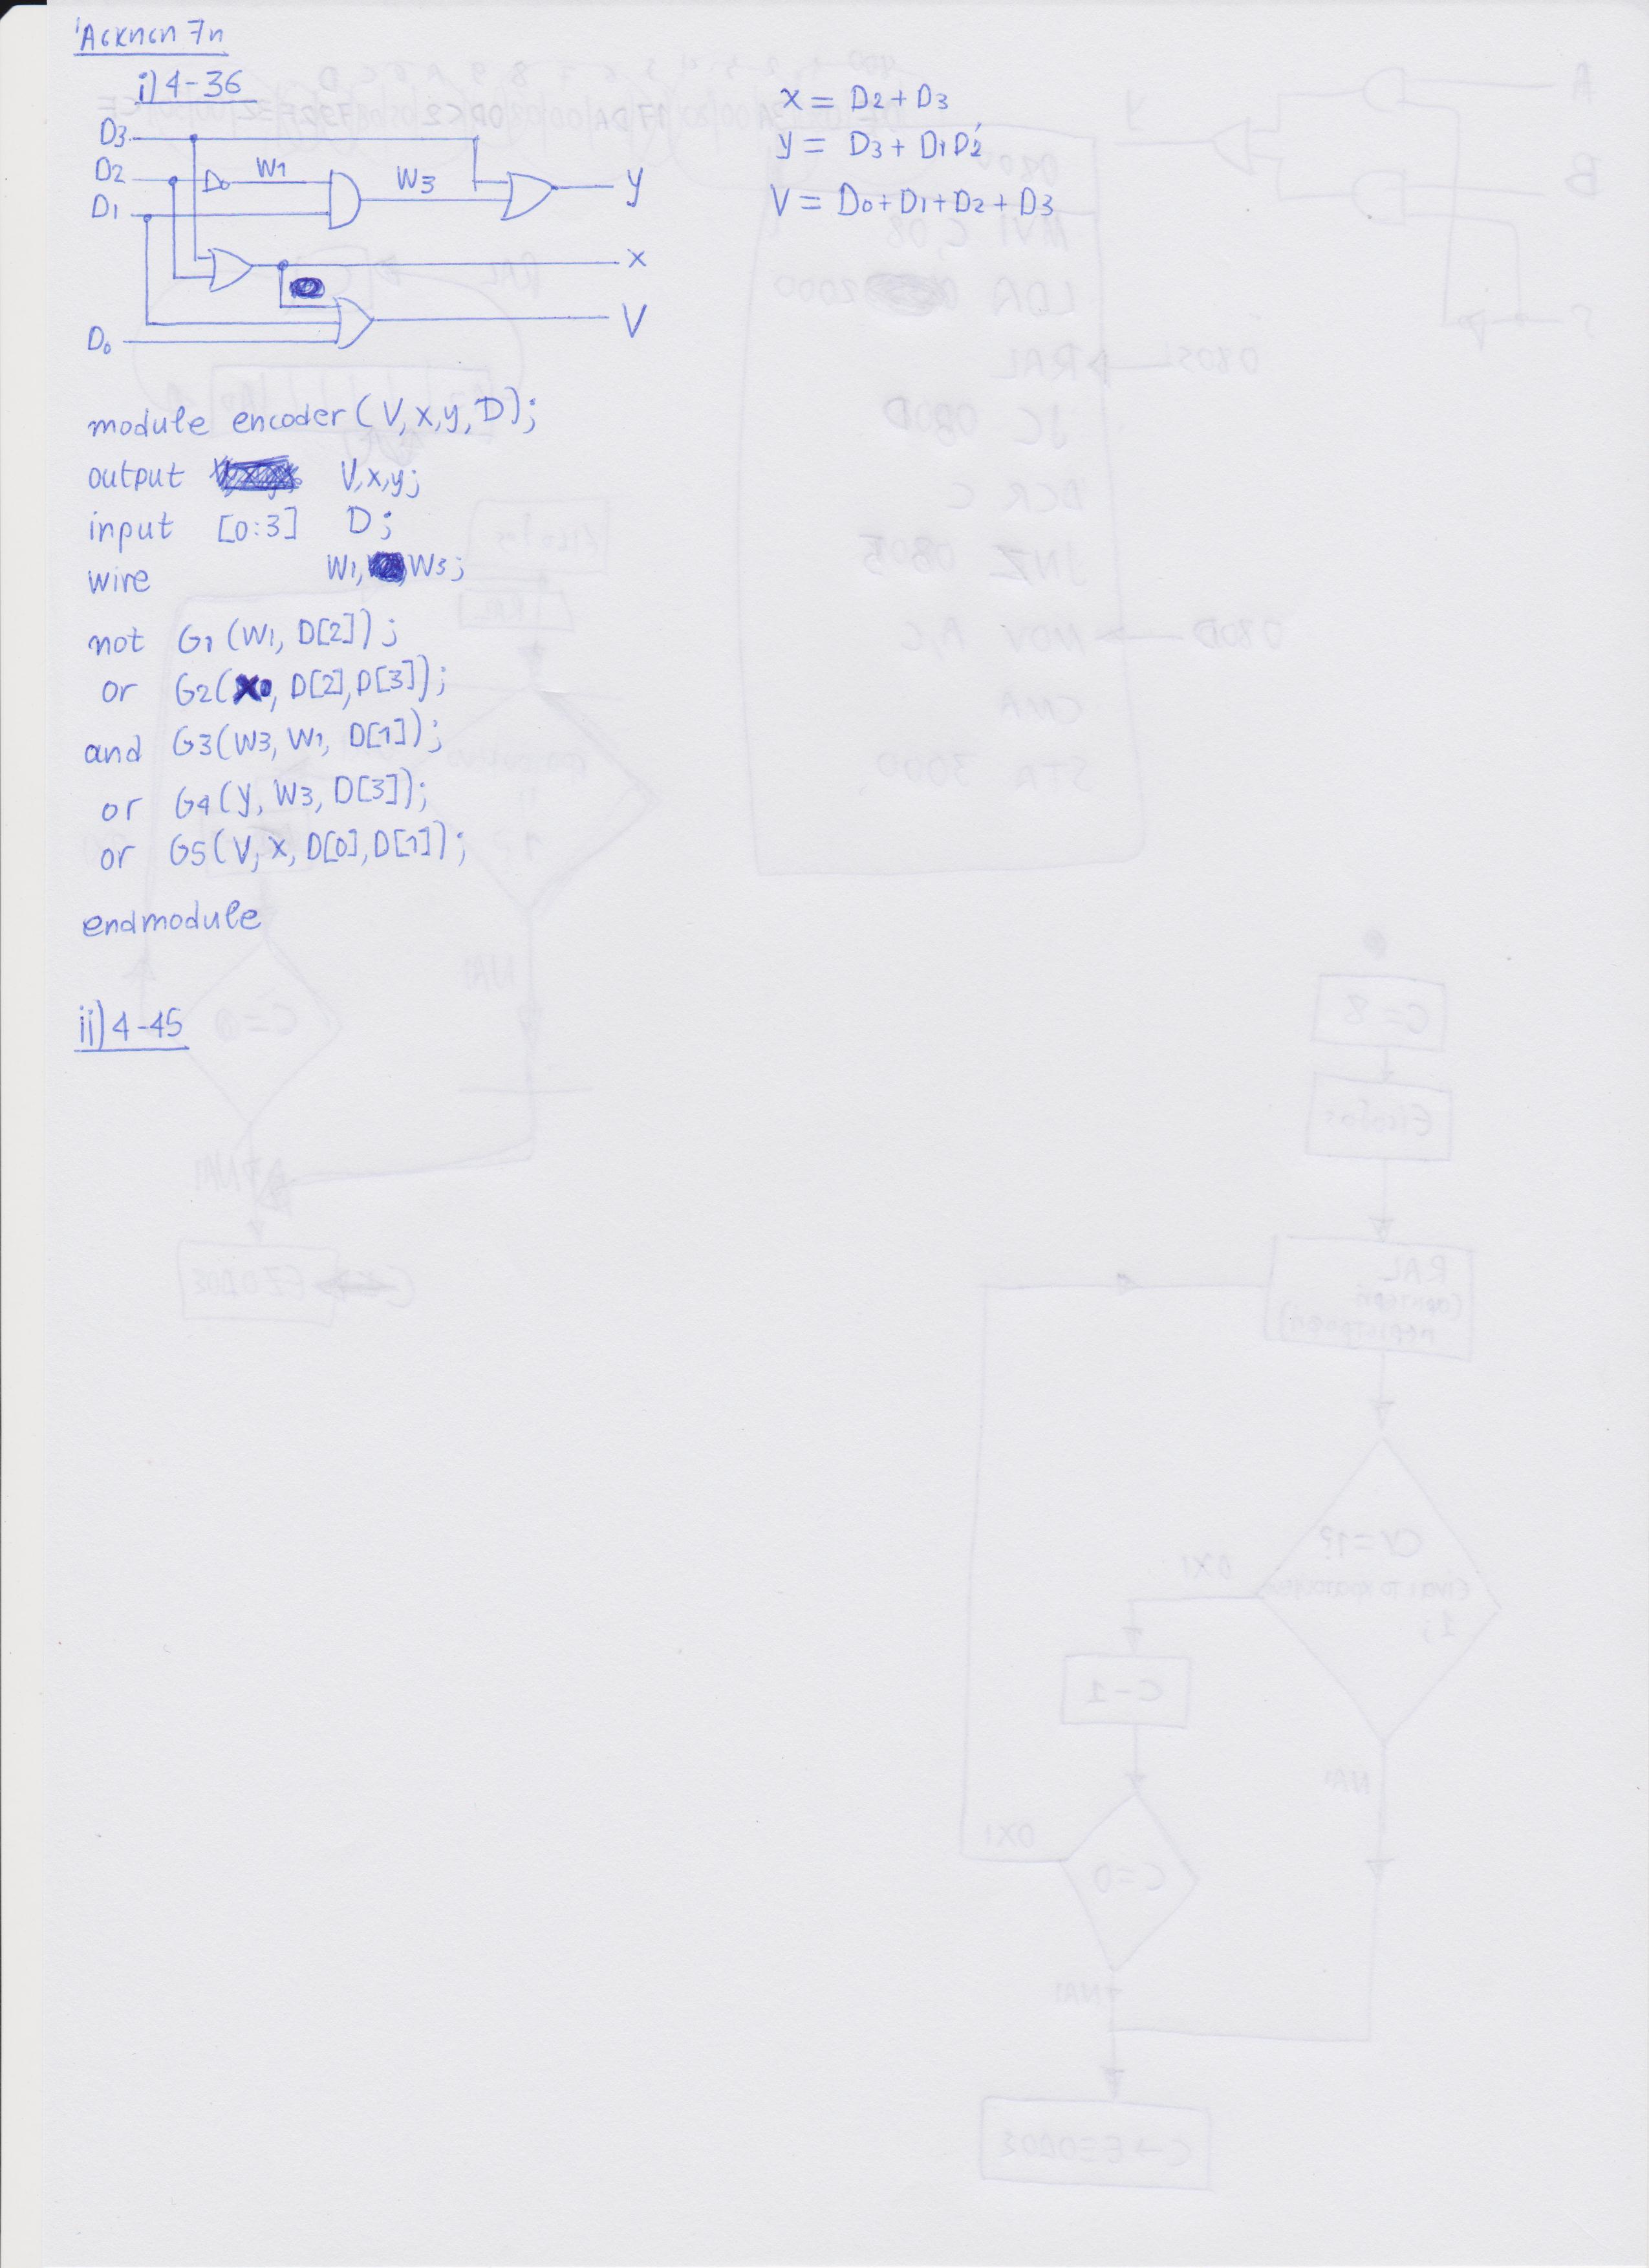 Άσκηση 7η
i) 4-36
x = D2 + D3
y = D3 + D1D2'
V = D0 + D1 + D2 + D3
D3
D2
W1
W3
y
D1
x
V
D0
module encoder (V, x, y, D);
output V, x, y;
input [0:3] D;
wire W1, W3;
not G1 (W1, D[2]);
or G2 (x, D[2], D[3]);
and G3 (W3, W1, D[1]);
or G4 (y, W3, D[3]);
or G5 (V, x, D[0], D[1]);
endmodule
ii) 4-45